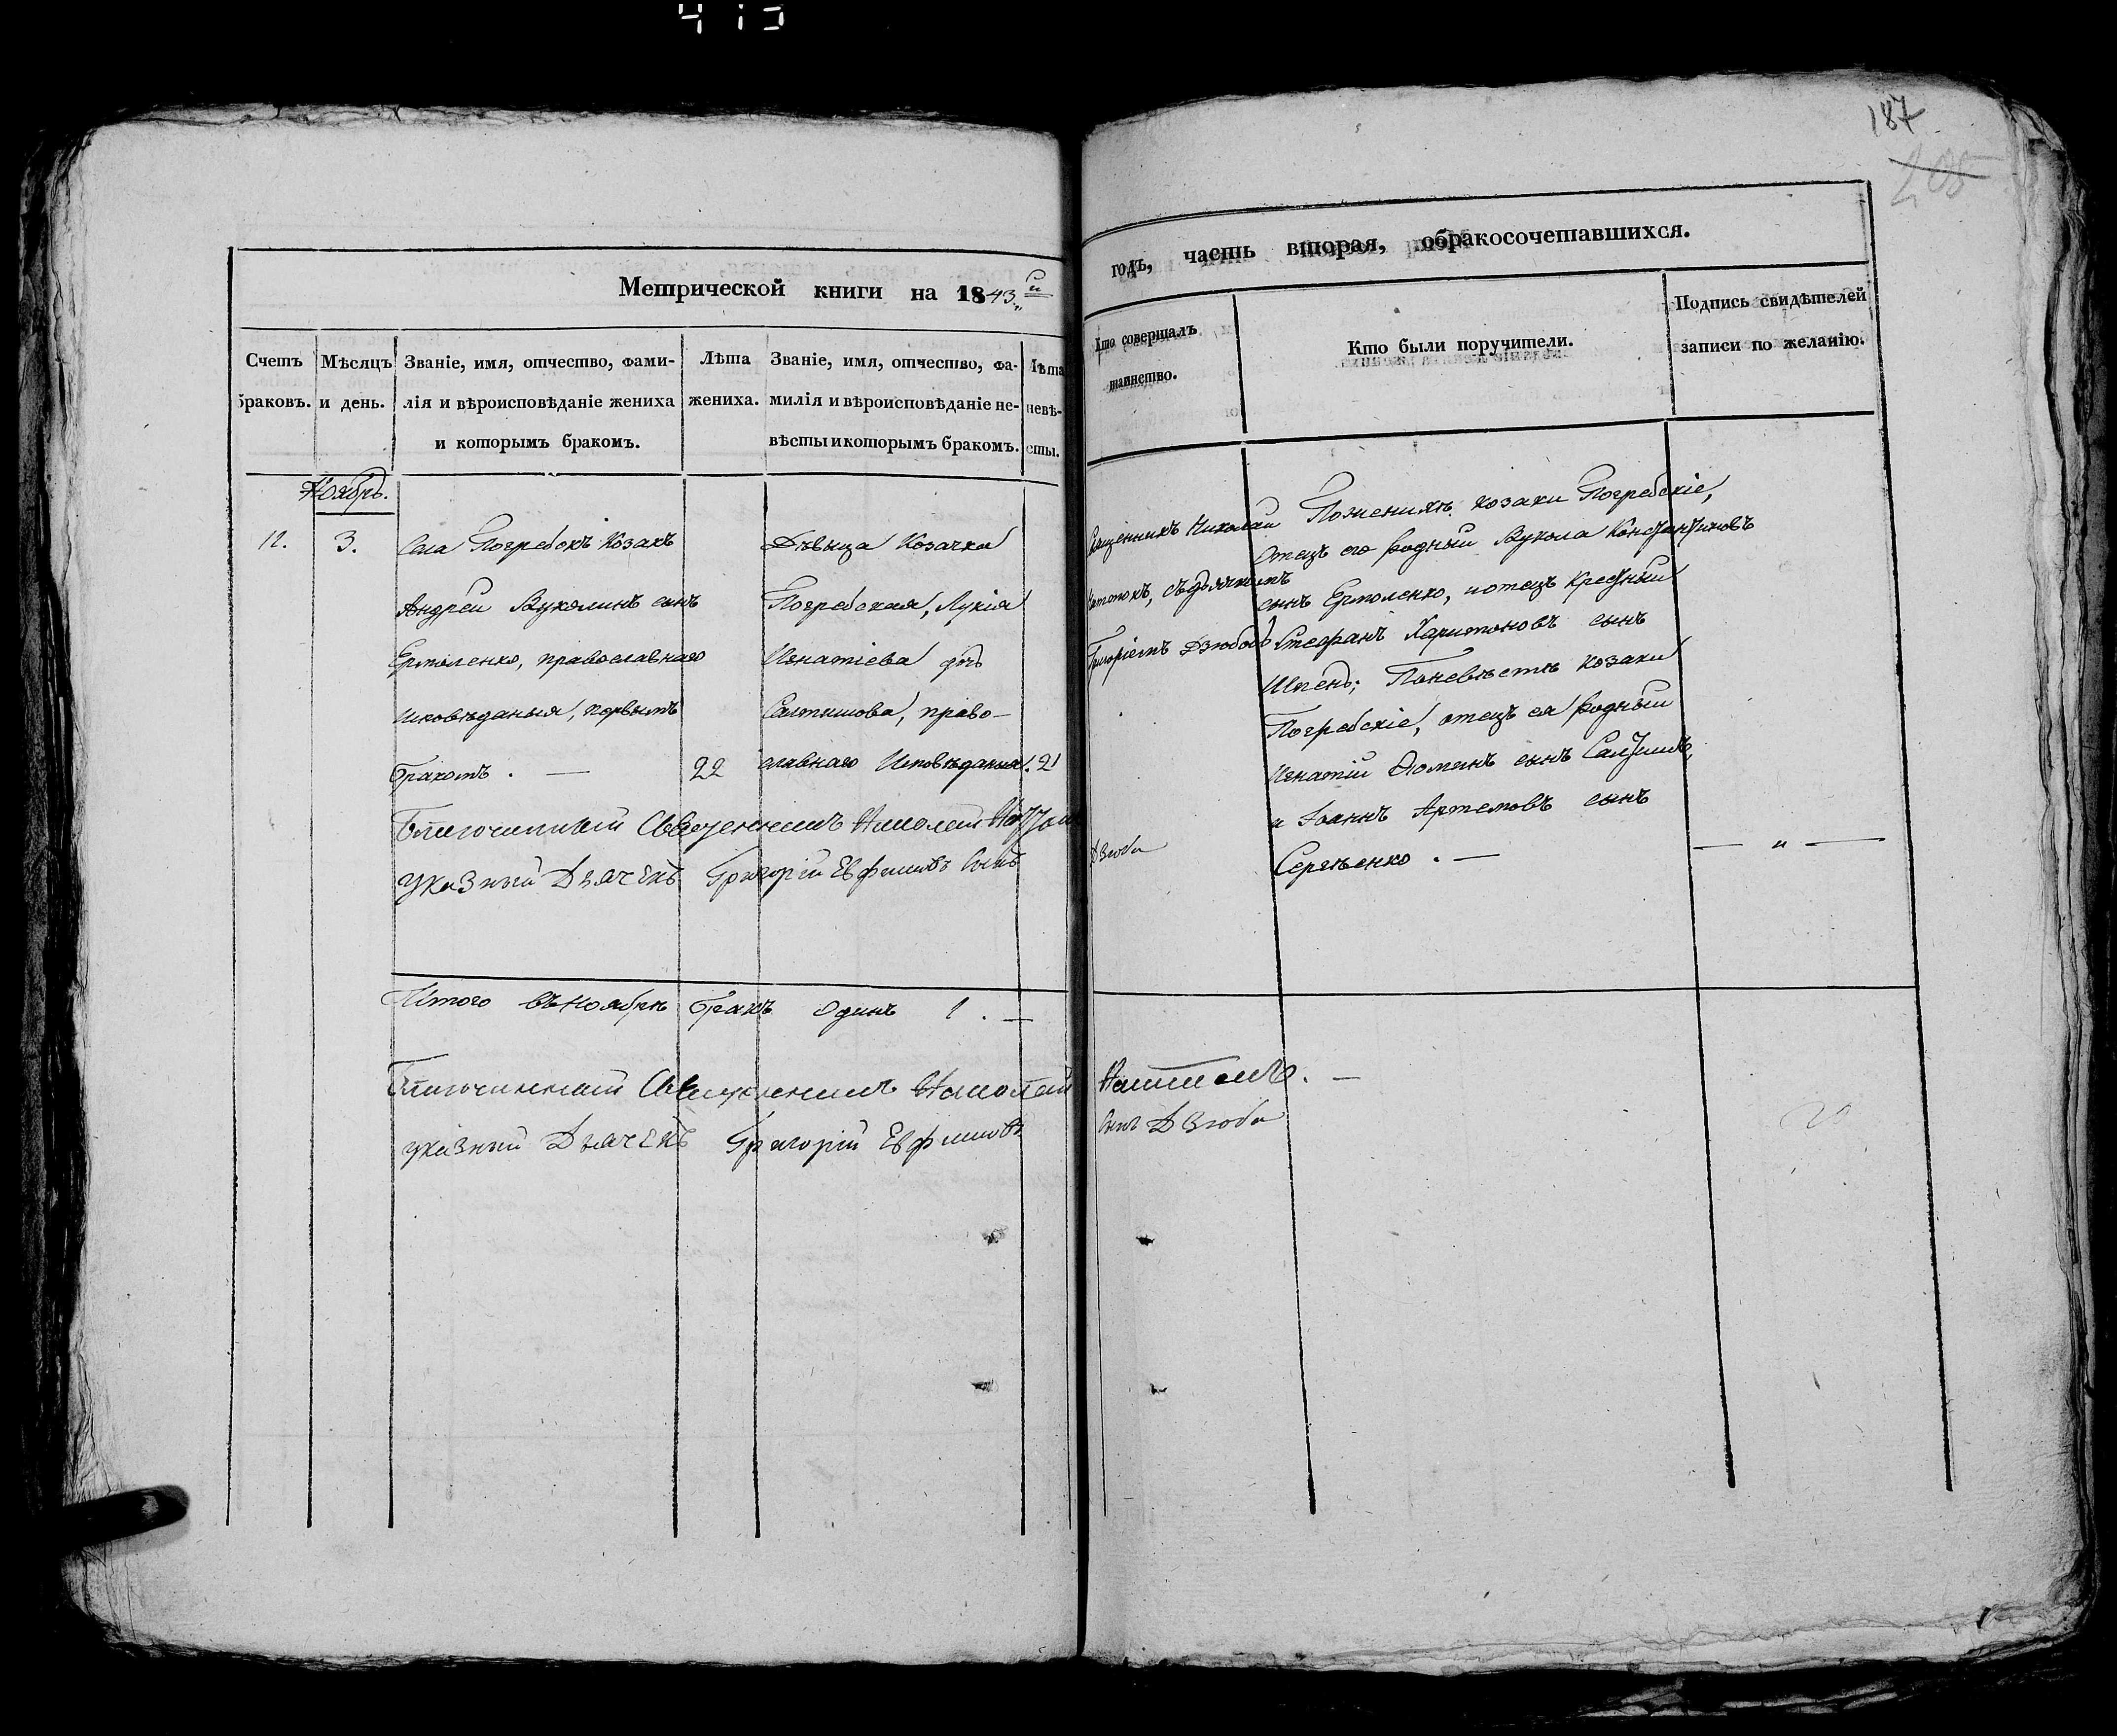 187
205
Метрической книги на 1843й
годъ, часть вторая, обракосочетавшихся.
Счетъ браковъ.
Мѣсяцъ и день.
Званіе, имя, отчество, фами-
лія и вѣроисповѣданіе жениха
и которымъ бракомъ.
Лѣта
жениха.
Званіе, имя, отчество, фа-
милія и вѣроисповѣданіе не-
вѣсты и которымъ бракомъ.
Лѣта
невѣ-
сты.
Кто совершалъ
таинство.
Кто были поручители.
Подпись свидѣтелей
записи по желанію.
Ноябрь.
12.
3.
Села Погребокъ Козакъ
Андрей Вуколинъ сынъ
Ермоленко, православнаго
исповѣданыя, первымъ
бракомъ. —
22
Дѣвыца Козачка
Погребская, Лукія
Игнатіева дчь
Салтышова, право-
славнаго Исповѣданыя.
21
Священникъ Николай
съ дьячкомъ
Григоріемъ Дзюбой
По женихѣ козаки Погребскіе,
Отецъ его родный Вукола Констянтиновъ
сынъ Ермоленко, и отецъ крестный
Стефанъ Харитоновъ сынъ
По невѣстѣ козаки
Погребскіе, отецъ ея родный
Игнатій сынъ
и Іоаннъ Артемовъ сынъ
Сергѣенко. —
— „ —
Благочинный Священникъ Николай
указный Дьячекъ Григорій Евфимовъ Сынъ Дзюба
Итого въ ноябрѣ бракъ одинъ 1. —
Благочинный Священникъ Николай
указный Дьячекъ Григорій Евфимовъ Сынъ Дзюба